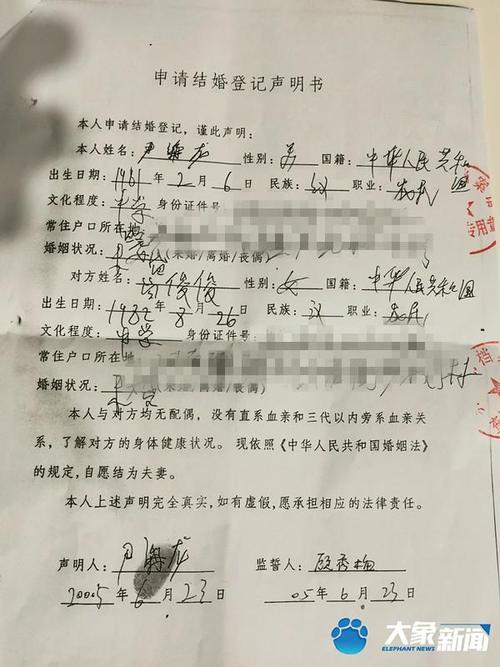 申请结婚登记声明书
本人申请结婚登记，谨此声明：
本人姓名：尹 龙 性别：男 国籍：中华人民共和国
出生日期：1981年2月6日 民族：汉 职业：农民
文化程度：中学 身份证件号
常住户口所在地
婚姻状况： (未婚/离婚/丧偶)
对方姓名： 俊俊 性别：女 国籍：中华人民共和国
出生日期：1982年8月26日 民族：汉 职业：农民
文化程度：中学 身份证件号
常住户口所在地 村
婚姻状况： (未婚/离婚/丧偶)
本人与对方均无配偶，没有直系血亲和三代以内旁系血亲关
系，了解对方的身体健康状况。现依照《中华人民共和国婚姻法》
的规定，自愿结为夫妻。
本人上述声明完全真实，如有虚假，愿承担相应的法律责任。
声明人：尹 龙 监誓人：顾秀梅
2005年6月23日 05年6月23日
专用章
档
大象新闻
ELEPHANT NEWS